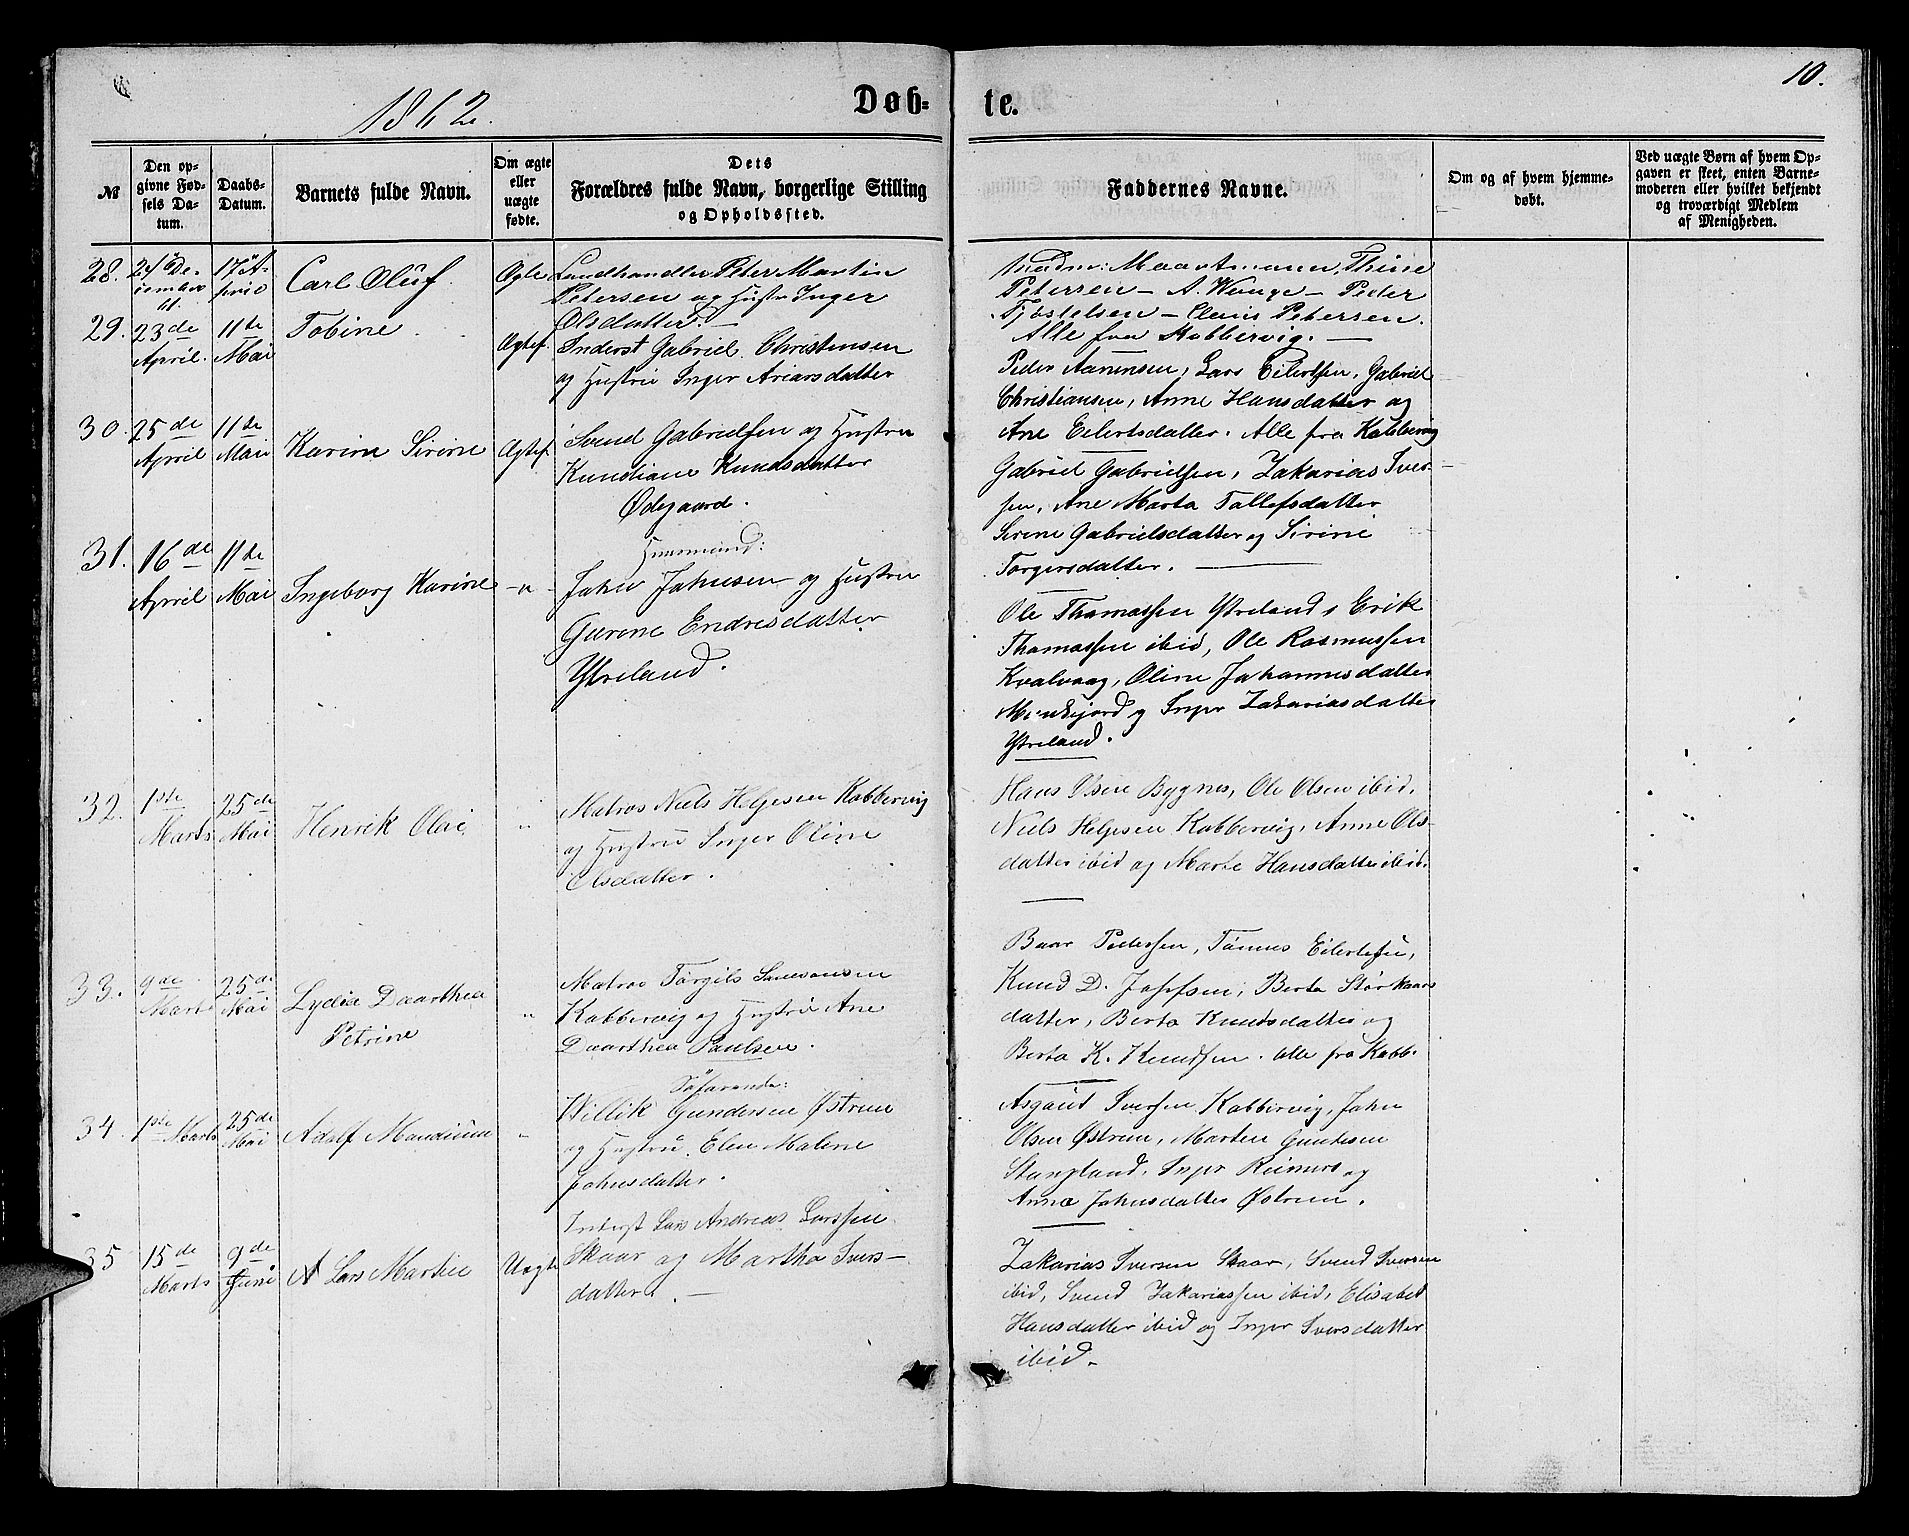 10.
1862.
Døb- te.
№
Den opgivne Fødsels Datum.
Daabs-Datum.
Barnets fulde Navn.
Om ægte eller uægte fødte.
Dets Forældres fulde Navn, borgerlige Stilling og Opholdssted.
Faddernes Navne.
Om og af hvem hjemmedøbt.
Ved uægte Børn af hvem Opgaven er skeet, enten Barnemoderen eller hvilket bekjendt og troværdigt Medlem af Menigheden.
28.
17 April
Carl Oluf.
Ægte
Landhandler Peter Martin
Petersen og Hustru Inger
Olsdatter. —
Thine
Petersen — A. Wange — Peder
Petersen.
Alle fra Kobbervig. —
29.
23de April.
11te Mai
Tobine
Ægtef.
Inderst Gabriel Christensen
og Hustru Inger
Peder Aanensen, Lars Eilertsen, Gabriel
Christiansen, Anne Hansdatter og
Ane Eilertsdatter. Alle fra Kobbervig
30.
25de April
11te Mai
Karine Sirine
Ægtef.
Svend Gabrielsen og Hustru
Kundiane Knudsdatter
Ødegaard.
Gabriel Gabrielsen, Zakarias Iver-
sen, Ane Marta Tollefsdatter
Serine Gabrielsdatter og Sirine
Torgersdatter. —
31.
16de April
11te Mai
Ingeborg Karine
- " -
Huusmand:
John Johnsen og Hustru
Gurine Endresdatter
Ytreland.
Ole Thomassen Ytreland, Erik
Thomassen ibid, Ole Rasmussen
Kvalvaag, Oline Johannesdatter
og Inger Zakariasdatter
Ytreland.
32.
1ste Marts
25de Mai
Henrik Olai
"
Matros Niels Helgesen Kobbervig
og Hustru Inger Oline
Olsdatter.
Hans Olsen Bygnes, Ole Olsen ibid.
Niels Helgesen Kobbervig, Anne Ols-
datter ibid og Marte Hansdatter ibid.
33.
9de Marts
25de Mai
Lydia Daarthea
Petrine
"
Matros Torgils
Kobbervig og Hustru Ane
Daarthea Paulsen.
Baar Pedersen, Tønnes Eilertsen,
Knud D. Josefsen, Berta Størkaars
datter, Berta Knudsdatter og
Berta K. Knudsen. Alle fra Kobb.
34.
1ste Marts
25de Mai
Adolf Mandium
"
Søfarende:
Willik Gundersen Østrem
og Hustru Elen Malene
Johnsdatter.
Asgaut Iversen Kobbervig, John
Olsen Østrem, Marten
Stangland, Inger Reimers og
Anna Johnsdatter Østrem.
35
15de Marts
9de Juni
Lars Martin
Uægte
Inderst Lars Andreas Larssen
Skaar og Martha Ivers-
datter. —
Zakarias Iversen Skaar, Svend Iversen
ibid, Svend Zakariassen ibid, Elisabet
Hansdatter ibid og Inger Iversdatter
ibid.